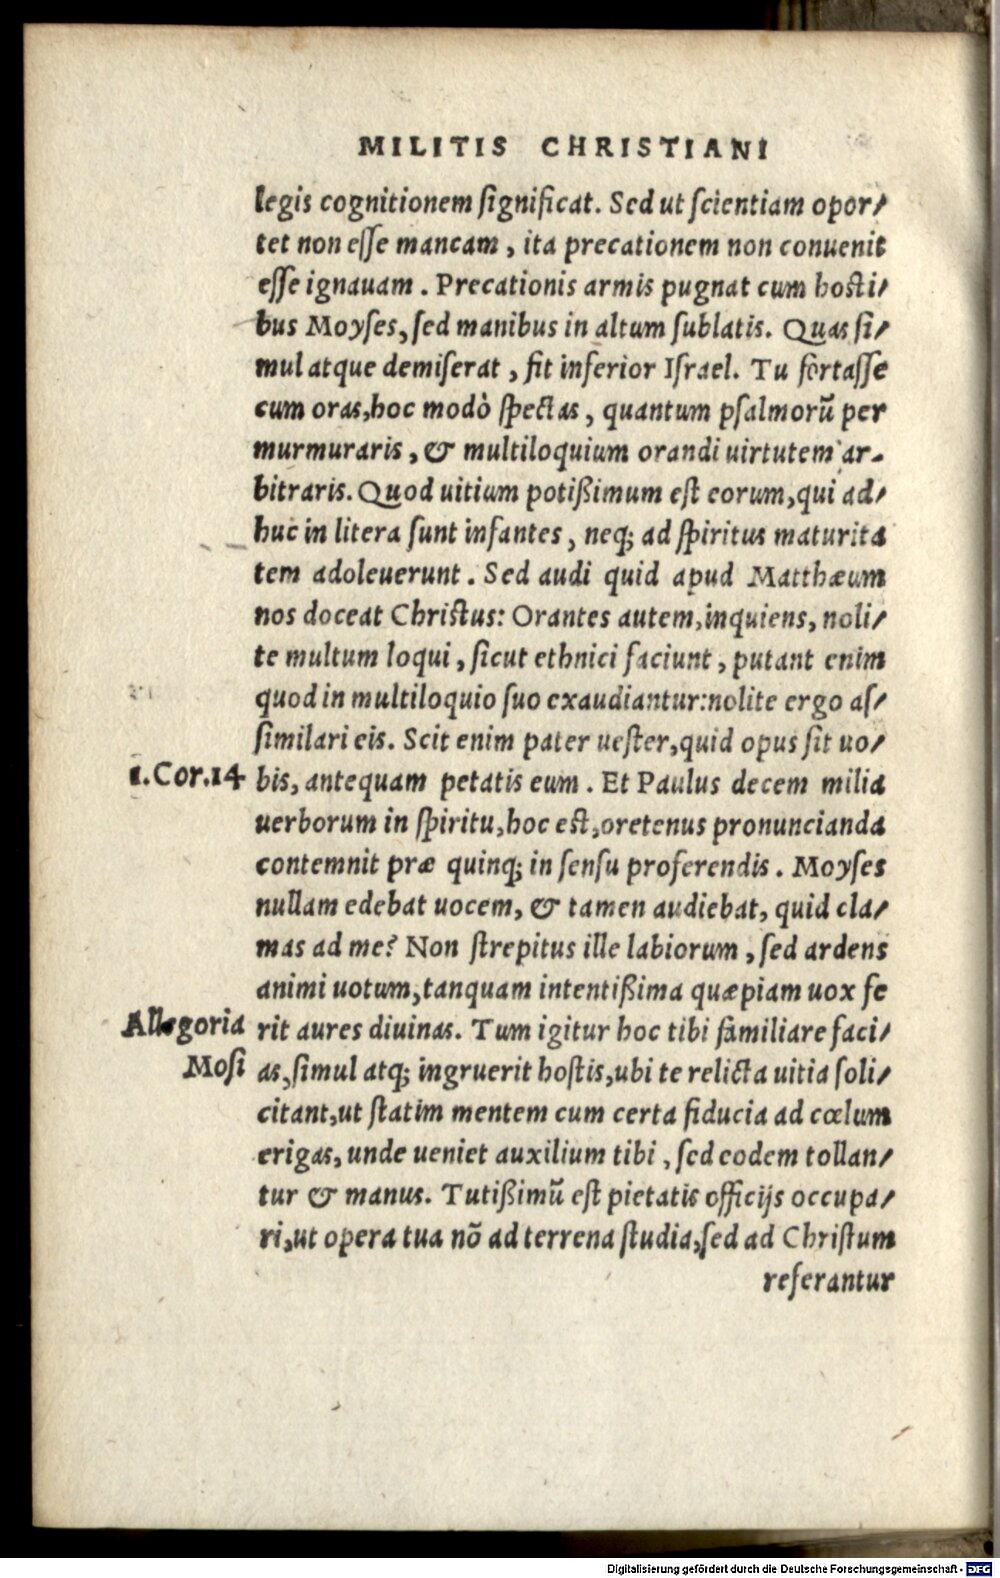 MILITIS CHRISTIANI
legis cognitionem ſignificat. Sed ut ſcientiam opor/
tet non eſſe mancam, ita precationem non conuenit
eſſe ignauam. Precationis armis pugnat cum hoſti/
bus Moyſes, ſed manibus in altum ſublatis. Quas ſi/
mul atque demiſerat, fit inferior Iſrael. Tu fortaſſe
cum oras, hoc modò ſpectas, quantum pſalmorũ per
murmuraris, & multiloquium orandi uirtutem ar-
bitraris. Quod uitium potißimum eſt eorum, qui ad/
huc in litera ſunt infantes, neq; ad ſpiritus maturita
tem adoleuerunt. Sed audi quid apud Matthæum
nos doceat Chriſtus: Orantes autem, inquiens, noli/
te multum loqui, ſicut ethnici faciunt, putant enim
quod in multiloquio ſuo exaudiantur: nolite ergo aſ/
ſimilari eis. Scit enim pater ueſter, quid opus ſit uo/
1.Cor.14 bis, antequam petatis eum. Et Paulus decem milia
uerborum in ſpiritu, hoc eſt, oretenus pronuncianda
contemnit præ quinq; in ſenſu proferendis. Moyſes
nullam edebat uocem, & tamen audiebat, quid cla/
mas ad me? Non ſtrepitus ille labiorum, ſed ardens
animi uotum, tanquam intentißima quæpiam uox fe
Allegoria rit aures diuinas. Tum igitur hoc tibi familiare faci/
Moſi as, ſimul atq; ingruerit hoſtis, ubi te relicta uitia ſoli/
citant, ut ſtatim mentem cum certa fiducia ad cœlum
erigas, unde ueniet auxilium tibi, ſed eodem tollan/
tur & manus. Tutißimũ eſt pietatis officijs occupa/
ri, ut opera tua nõ ad terrena ſtudia, ſed ad Chriſtum
referantur
Digitalisierung gefördert durch die Deutsche Forschungsgemeinschaft - DFG